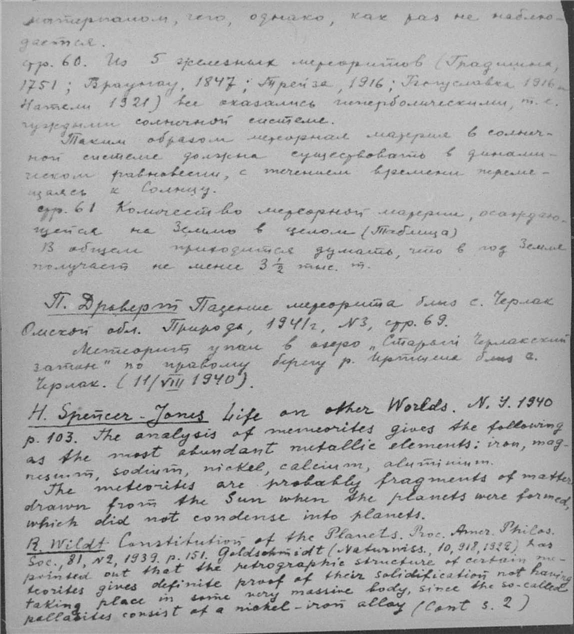 материалом, чего, однако, как раз не наблю-
дается.
стр. 60. Из 5 железных метеоритов (Градшина,
1751; Браунау, 1847; Трейза, 1916; Богуславка 1916,
1921) все оказались гиперболическими, т.е.
чуждыми солнечной системе.
Таким образом метеорная материя в солнеч-
ной системе должна существовать в динами-
ческом равновесии, с течением времени переме-
щаясь к Солнцу.
стр. 61 Количество метеорной материи, осаждаю-
щейся на Землю в целом (Таблица)
В общем приходится думать, что в год Земле
получает не менее 3 ½ тыс. т.
П. Драверт Падение метеорита близ с. Черлак
Омской обл. Природа, 1941г, N3, стр. 69.
Метеорит упал в озеро „Старый Черлакский
затон" по правому берегу р. Иртыша близ с.
Черлак. (11/VIII 1940).
H. Spencer-Jones Life on other Worlds. N.Y. 1940
p. 103. The analysis of memeorites gives the following
as the most abundant metallic elements: iron, mag-
nesium, sodium, nickel, calcium, aluminium.
The meteorites are probably fragments of matter
drawn from the Sun when the planets were formed,
which did not condense into planets.
R. Wildt Constitution of the Planets. Proc. Amer. Philos.
Soc., 81, N2, 1939. p. 151. Goldschmidt (Naturwiss. 10, 918, 1922) has
pointed out that the petrographic structure of certain me-
teorites gives definite proof of their solidification not having
taking place in some very massive body, since the so-called
pallasites consist of a nickel-iron alloy (Cont s. 2)